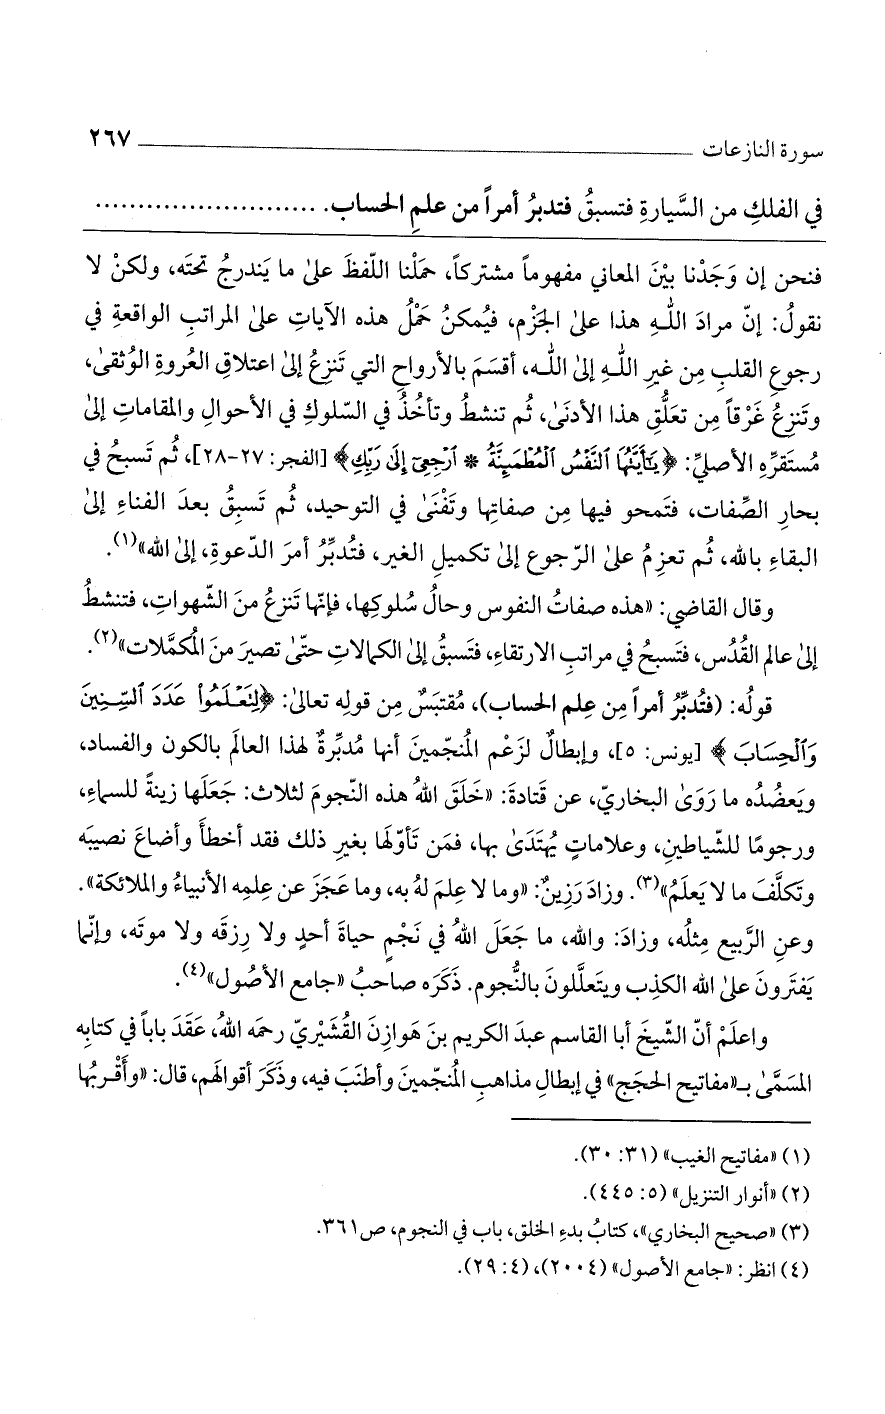 سورة النازعات ٢٦٧
في الفلكِ من السَّيارةِ فتسبقُ فتدبرُ أمراً من علمِ الحساب. ..........................
فنحن إن وَجَدْنا بيْنَ المعاني مفهوماً مشتركاً، حمَلْنا اللّفظَ علىٰ ما يَندرجُ تحتَه، ولكنْ لا
نقولُ: إنّ مرادَ اللهِ هذا علىٰ الجَزْم، فيُمكنُ حَمْلُ هذه الآياتِ علىٰ المراتبِ الواقعةِ في
رجوعِ القلبِ مِن غيرِ اللهِ إلىٰ الله، أقسَمَ بالأرواحِ التي تَنزِعُ إلىٰ اعتلاقِ العُروةِ الوُثقىٰ،
وتَنزِعُ غَرْقاً مِن تعَلُّقِ هذا الأدنَىٰ، ثُم تنشطُ وتأخُذُ في السّلوكِ في الأحوالِ والمقاماتِ إلىٰ
مُستَقرِّهِ الأصليِّ: ﴿يَٰٓأَيَّتُهَا ٱلنَّفْسُ ٱلْمُطْمَئِنَّةُ * ٱرْجِعِىٓ إِلَىٰ رَبِّكِ﴾ [الفجر: ٢٧-٢٨]، ثُم تَسبحُ في
بحارِ الصِّفات، فتَمحو فيها مِن صفاتِها وتَفْنَىٰ في التوحيد، ثُم تَسبِقُ بعدَ الفناءِ إلىٰ
البقاءِ بالله، ثُم تعزِمُ علىٰ الرّجوع إلىٰ تكميلِ الغير، فتُدبِّرُ أمرَ الدّعوةِ، إلىٰ الله»(١).
وقال القاضي: «هذه صفاتُ النفوس وحالُ سُلوكِها، فإنّها تَنزعُ منَ الشّهواتِ، فتنشطُ
إلىٰ عالم القُدُس، فتَسبحُ في مراتبِ الارتقاءِ، فتَسبقُ إلىٰ الكمالاتِ حتّىٰ تصيرَ منَ المُكمَّلات»(٢).
قولُه: (فتُدبِّرُ أمراً مِن عِلمِ الحساب)، مُقتبَسٌ مِن قولِه تعالىٰ: ﴿لِتَعْلَمُوا۟ عَدَدَ ٱلسِّنِينَ
وَٱلْحِسَابَ ﴾ [يونس: ٥]، وإبطالٌ لزَعْمِ المُنجّمينَ أنها مُدبِّرةٌ لهذا العالَمِ بالكون والفساد،
ويَعضُدُه ما رَوَىٰ البخاريّ، عن قتادةَ: «خَلَقَ اللهُ هذه النّجومَ لثلاث: جَعَلَها زينةً للسماءِ،
ورجومًا للشّياطينِ، وعلاماتٍ يُهتَدَىٰ بها، فمَن تَأوّلَها بغيرِ ذلك فقد أخطأَ وأضاعَ نصيبَه
وتكلَّفَ ما لا يَعلَمُ»(٣). وزادَ رَزِينٌ: «وما لا عِلمَ لهُ به، وما عَجَزَ عن عِلمِه الأنبياءُ والملائكة».
وعنِ الرَّبيعِ مِثلُه، وزادَ: والله، ما جَعَلَ اللهُ في نَجْمٍ حياةَ أحدٍ ولا رِزقَه ولا موتَه، وإنّما
يَفتَرونَ علىٰ الله الكذِب ويتعلَّلونَ بالنُّجوم. ذَكَرَه صاحبُ «جامع الأصُول»(٤).
واعلَمْ أنّ الشّيخَ أبا القاسم عبدَ الكريم بنَ هَوازِنَ القُشَيْريّ رحمَه اللهُ، عَقَدَ باباً في كتابِه
المسَمَّىٰ بـ«مفاتيح الحجَج» في إبطالِ مذاهبِ المُنجّمينَ وأطنَبَ فيه، وذَكَرَ أقوالَهم، قال: «وأَقْربُها
(١) «مفاتيح الغيب» (٣١: ٣٠).
(٢) «أنوار التنزيل» (٥: ٤٤٥).
(٣) «صحيح البخاري»، كتابُ بدءِ الخلق، باب في النجوم، ص٣٦١.
(٤) انظر: «جامع الأصول» (٢٠٠٤)، (٤: ٢٩).